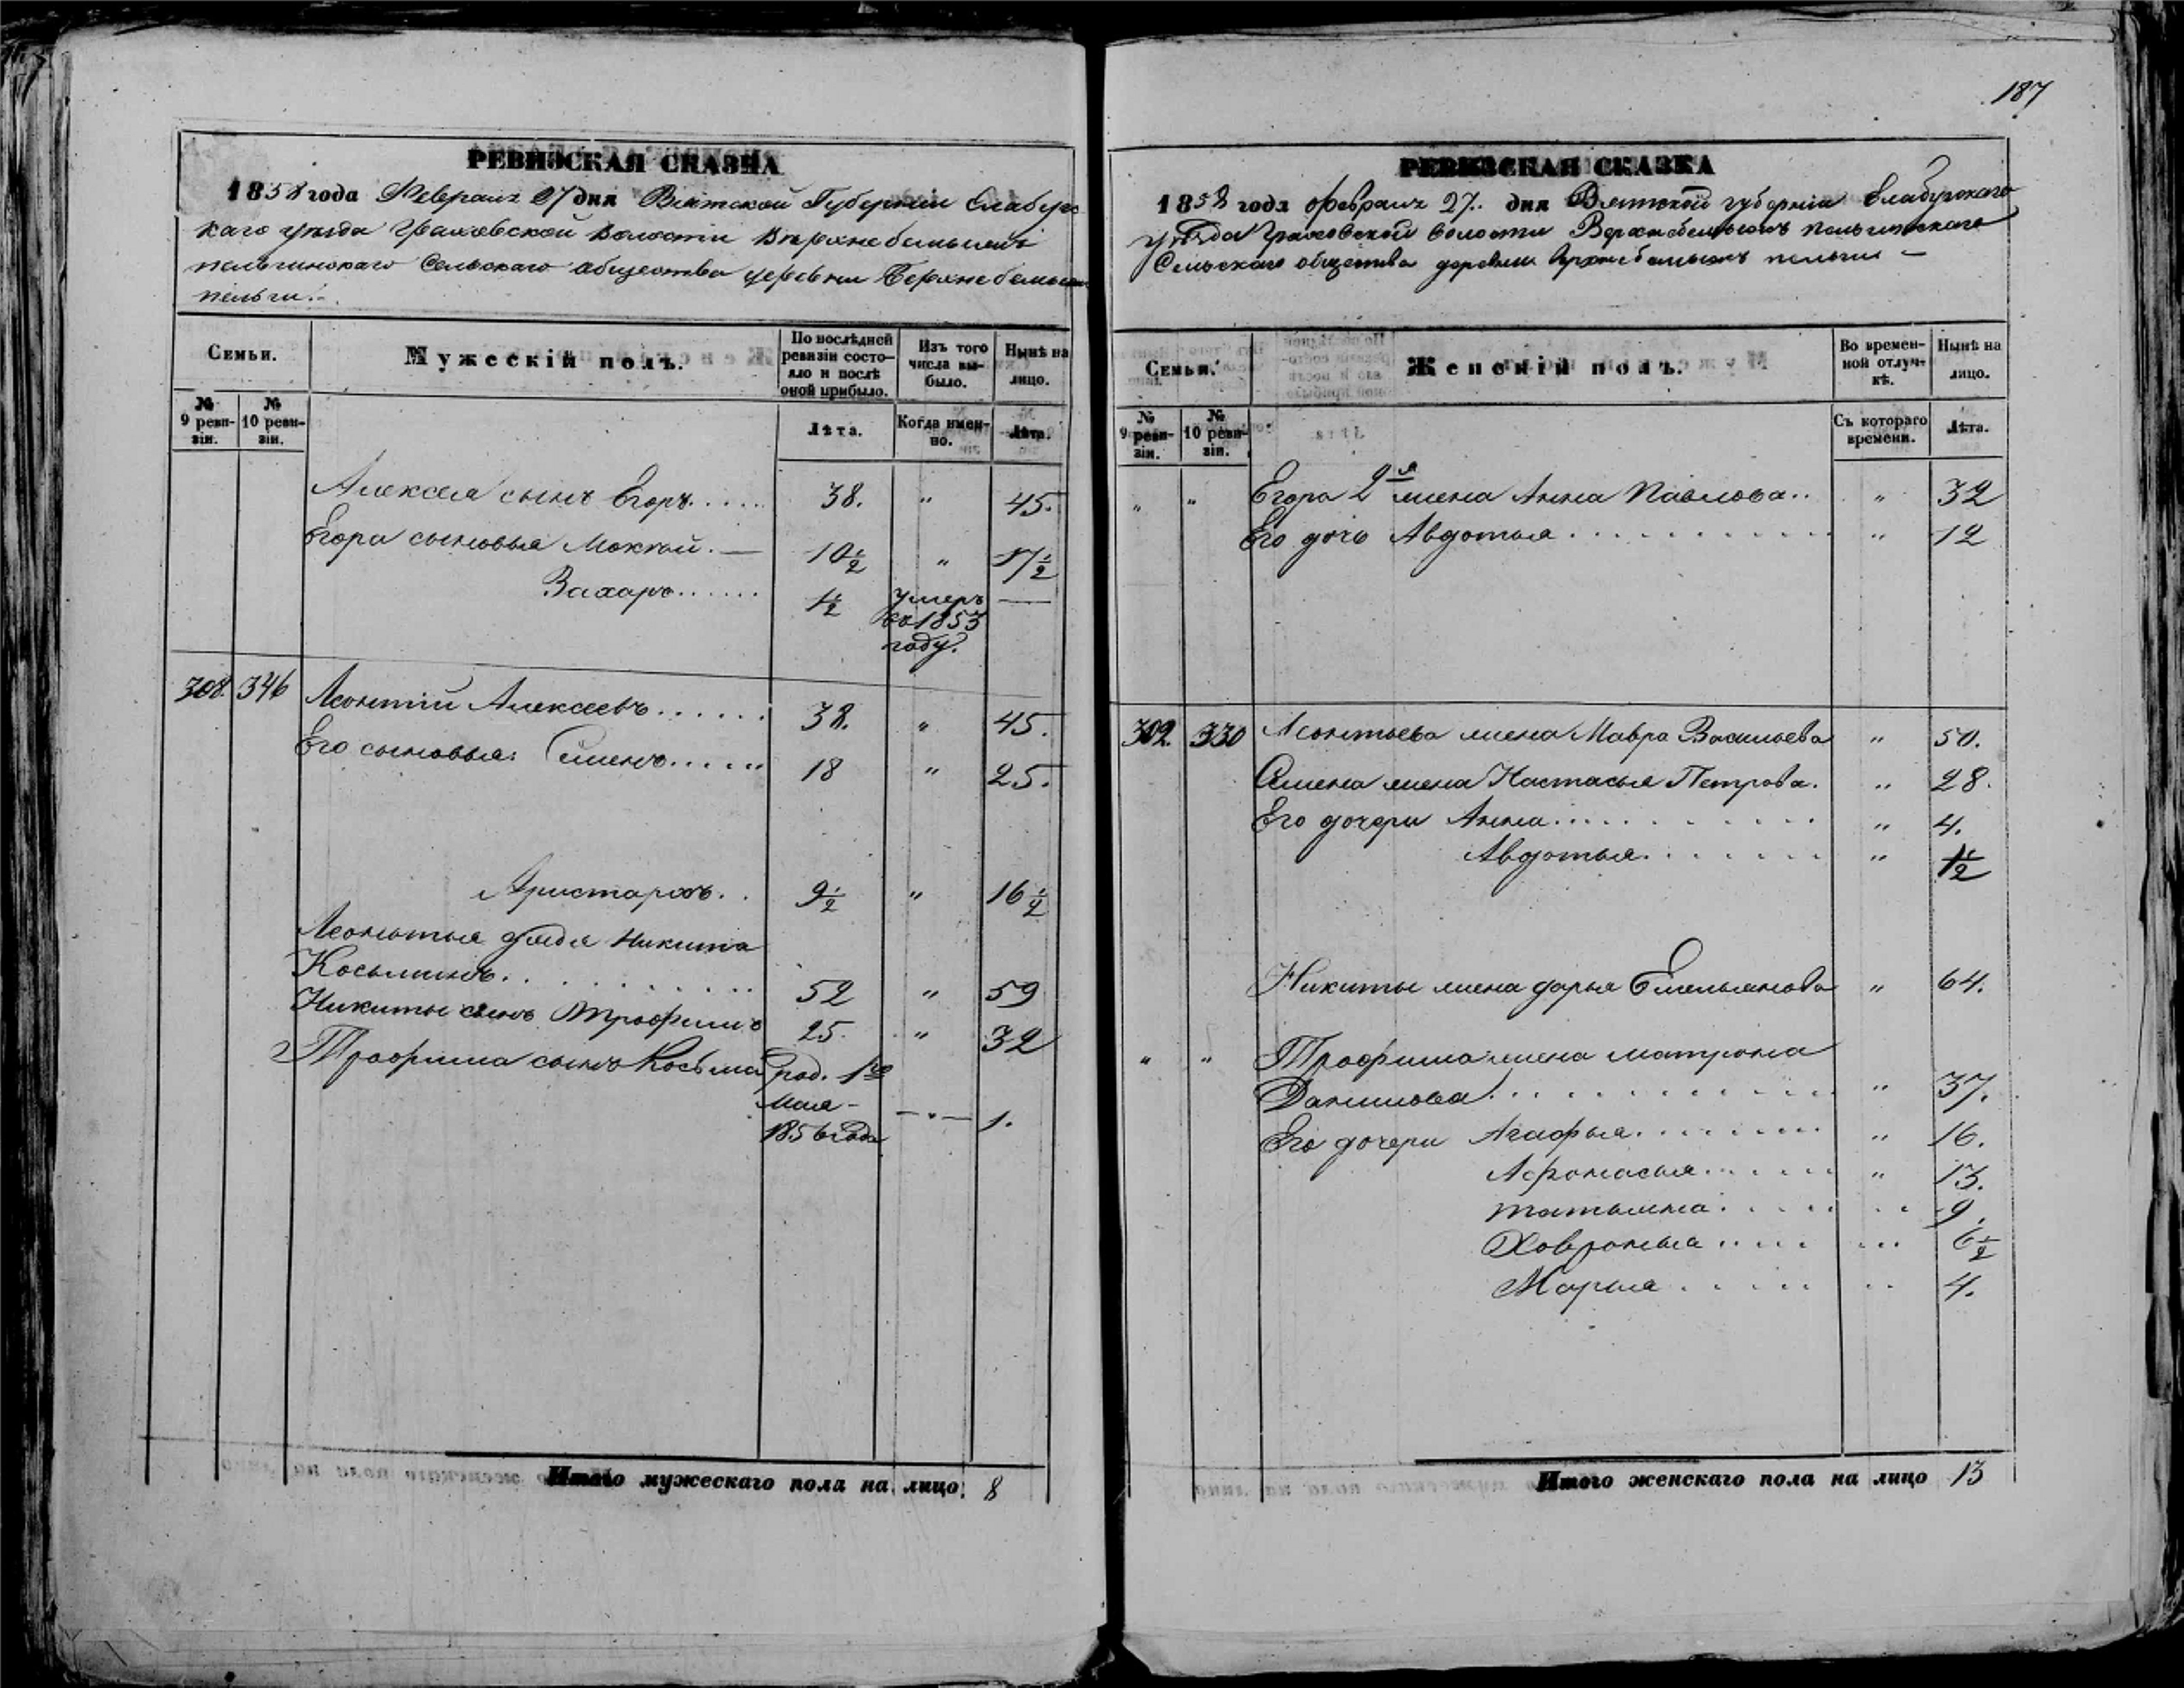 187
РЕВИЗСКАЯ СКАЗКА
1858 года Февраля 27 дня Вятской Губерніи Елабугс
каго уѣзда Граховской Волости Верхнебемыжъ
пельгинскаго Сельскаго общества деревни Верхнебемыжъ
пельги.
Семьи.
Мужескій полъ.
По послѣдней ревизіи состо-
яло и послѣ оной прибыло.
Изъ того числа вы-
было.
Нынѣ на лицо.
№ 9 реви-
зіи.
№ 10 реви-
зіи.
Лѣта.
Когда имен-
но.
Лѣта.
Алексѣя сынъ Егоръ..... 38. " 45.
Егора сыновья Моккей. — 10½ " 17½
Захаръ...... ½ умеръ —
въ 1853
году.
308. 346 Леонтій Алексеевъ...... 38. " 45.
Его сыновья: Семенъ..... 18 " 25.
Аристархъ. . 9½ " 16½
Леонтья дядя Никита
Косьминъ. 52 " 59
Никиты сынъ Трофимъ 25. " 32
Трофима сынъ Косьма род. 1го
Мая — " — 1.
1856 года
Итого мужескаго пола на лицо 8
РЕВИЗСКАЯ СКАЗКА
1858 года Февраля 27. дня Вятской губерніи Елабугскаго
уѣзда Граховской волости Верхнебемыжъ пельгинскаго
Сельскаго общества деревни верхнебемыжъ пельги —
Семьи.
Женскій полъ.
Во времен-
ной отлуч-
кѣ.
Нынѣ на лицо.
№ 9 реви-
зіи.
№ 10 реви-
зіи.
Съ котораго времени.
Лѣта.
" " Егора 2я жена Анна Павлова.. " 32
Его дочь Авдотья........... " 12
302. 330 Леонтьева жена Мавра Васильева " 50.
Семена жена Настасья Петрова. " 28.
Его дочери Анна........... " 4.
Авдотья....... " ½
Никиты жена дарья Емельянова " 64.
" " Трофима жена матрона
Данилова............ " 37.
Его дочери Агафья........ " 16.
Афонасья...... " 13.
татьяна...... " 9.
Ховронья..... " 6½
Марья...... " 4.
Итого женскаго пола на лицо 13